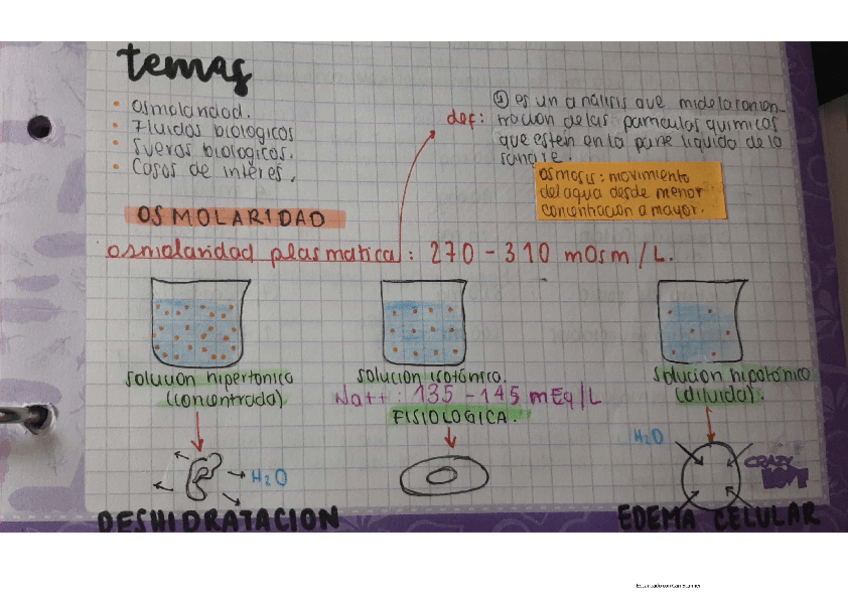 temas
• osmolaridad.
• Fluidos biologicos
• Sueros biologicos.
• Casos de interes.
def: es un analisis que mide la concen-
tracion de las particulas quimicas
que esten en la parte liquida de la
sangre.
osmosis: movimiento
del agua desde menor
concentracion a mayor.
OSMOLARIDAD
osmolaridad plasmatica: 270 - 310 mOsm/L.
solucion hipertonica
(concentrada)
solucion isotónica
Na++: 135 - 145 mEq/L
FISIOLOGICA.
solucion hipotónica
(diluida).
H2O
H2O
CRAZY
DESHIDRATACION
EDEMA CELULAR
Escaneado con CamScanner